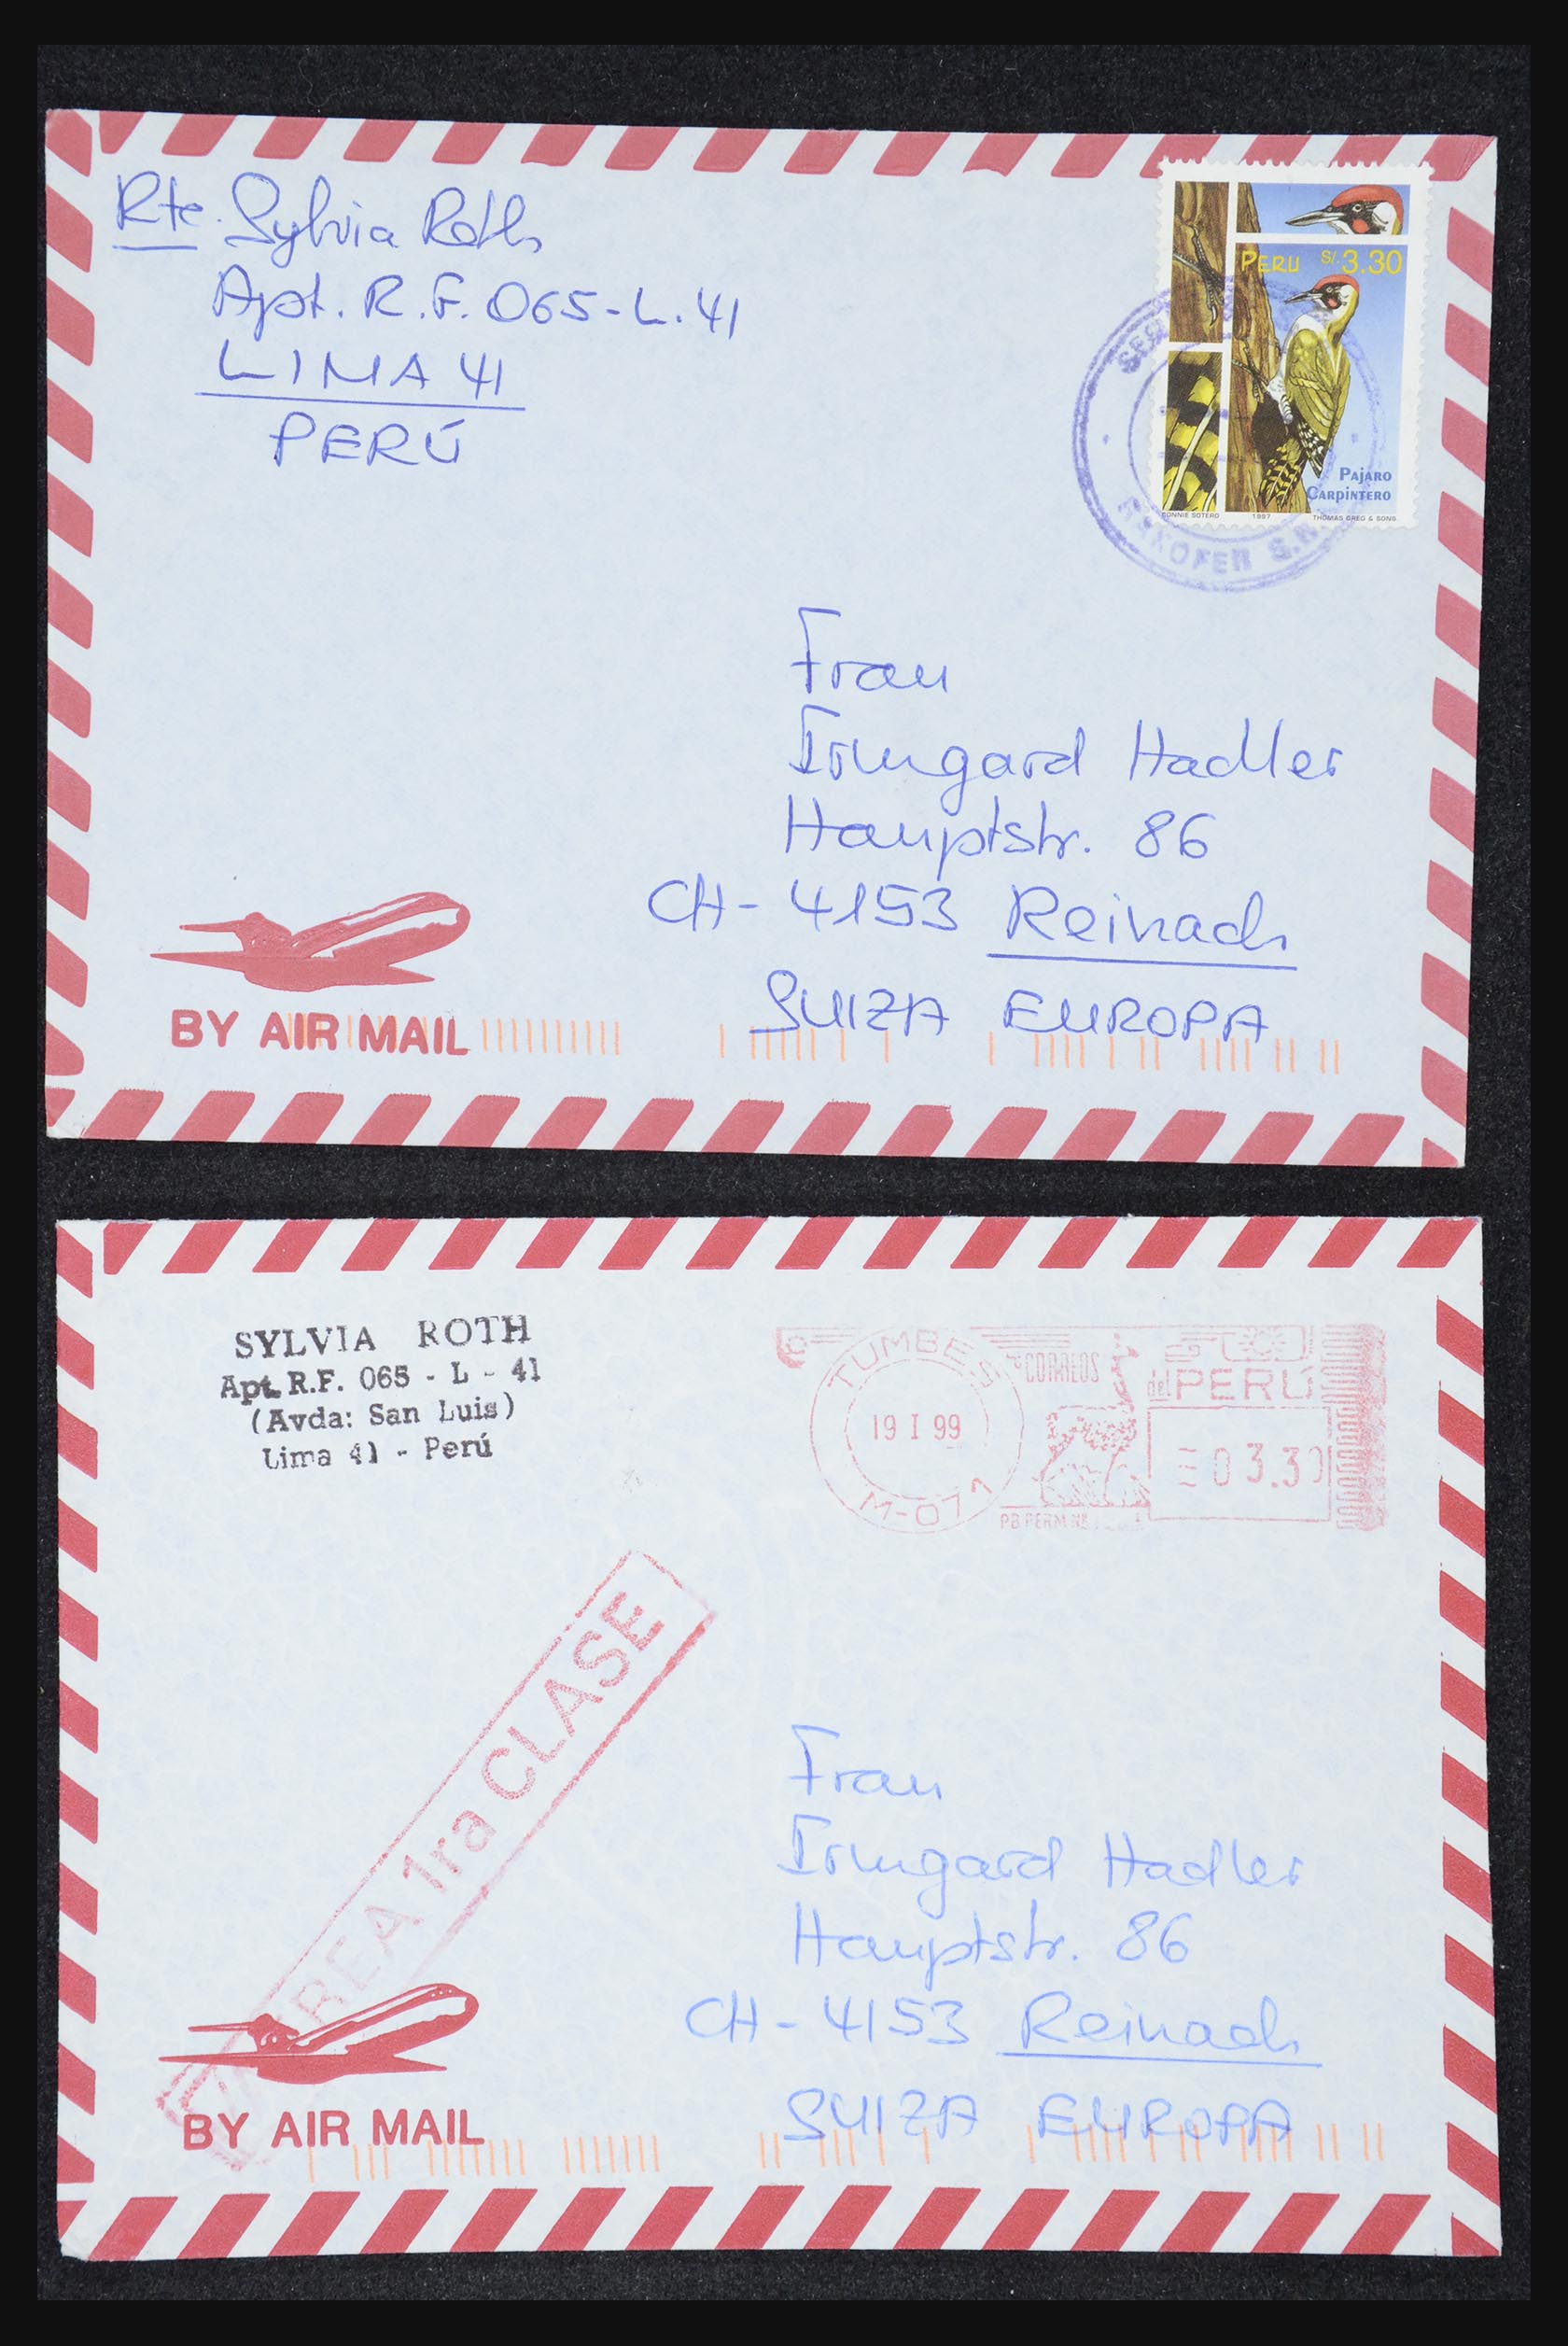 Rte. Sylvia Roth
Apt. R.F. 065-L.41
LIMA 41
PERÚ
PERU S/.3.30
PAJARO
CARPINTERO
1997 THOMAS GREG & SONS
Frau
Irmgard Hadler
Hauptstr. 86
CH-4153 Reinach
SUIZA EUROPA
BY AIR MAIL
SYLVIA ROTH
Apt. R.F. 065 - L - 41
(Avda: San Luis)
Lima 41 - Perú
TUMBES
19 I 99
M-071
CORREOS
del PERÚ
03.30
1ra CLASE
Frau
Irmgard Hadler
Hauptstr. 86
CH-4153 Reinach
SUIZA EUROPA
BY AIR MAIL